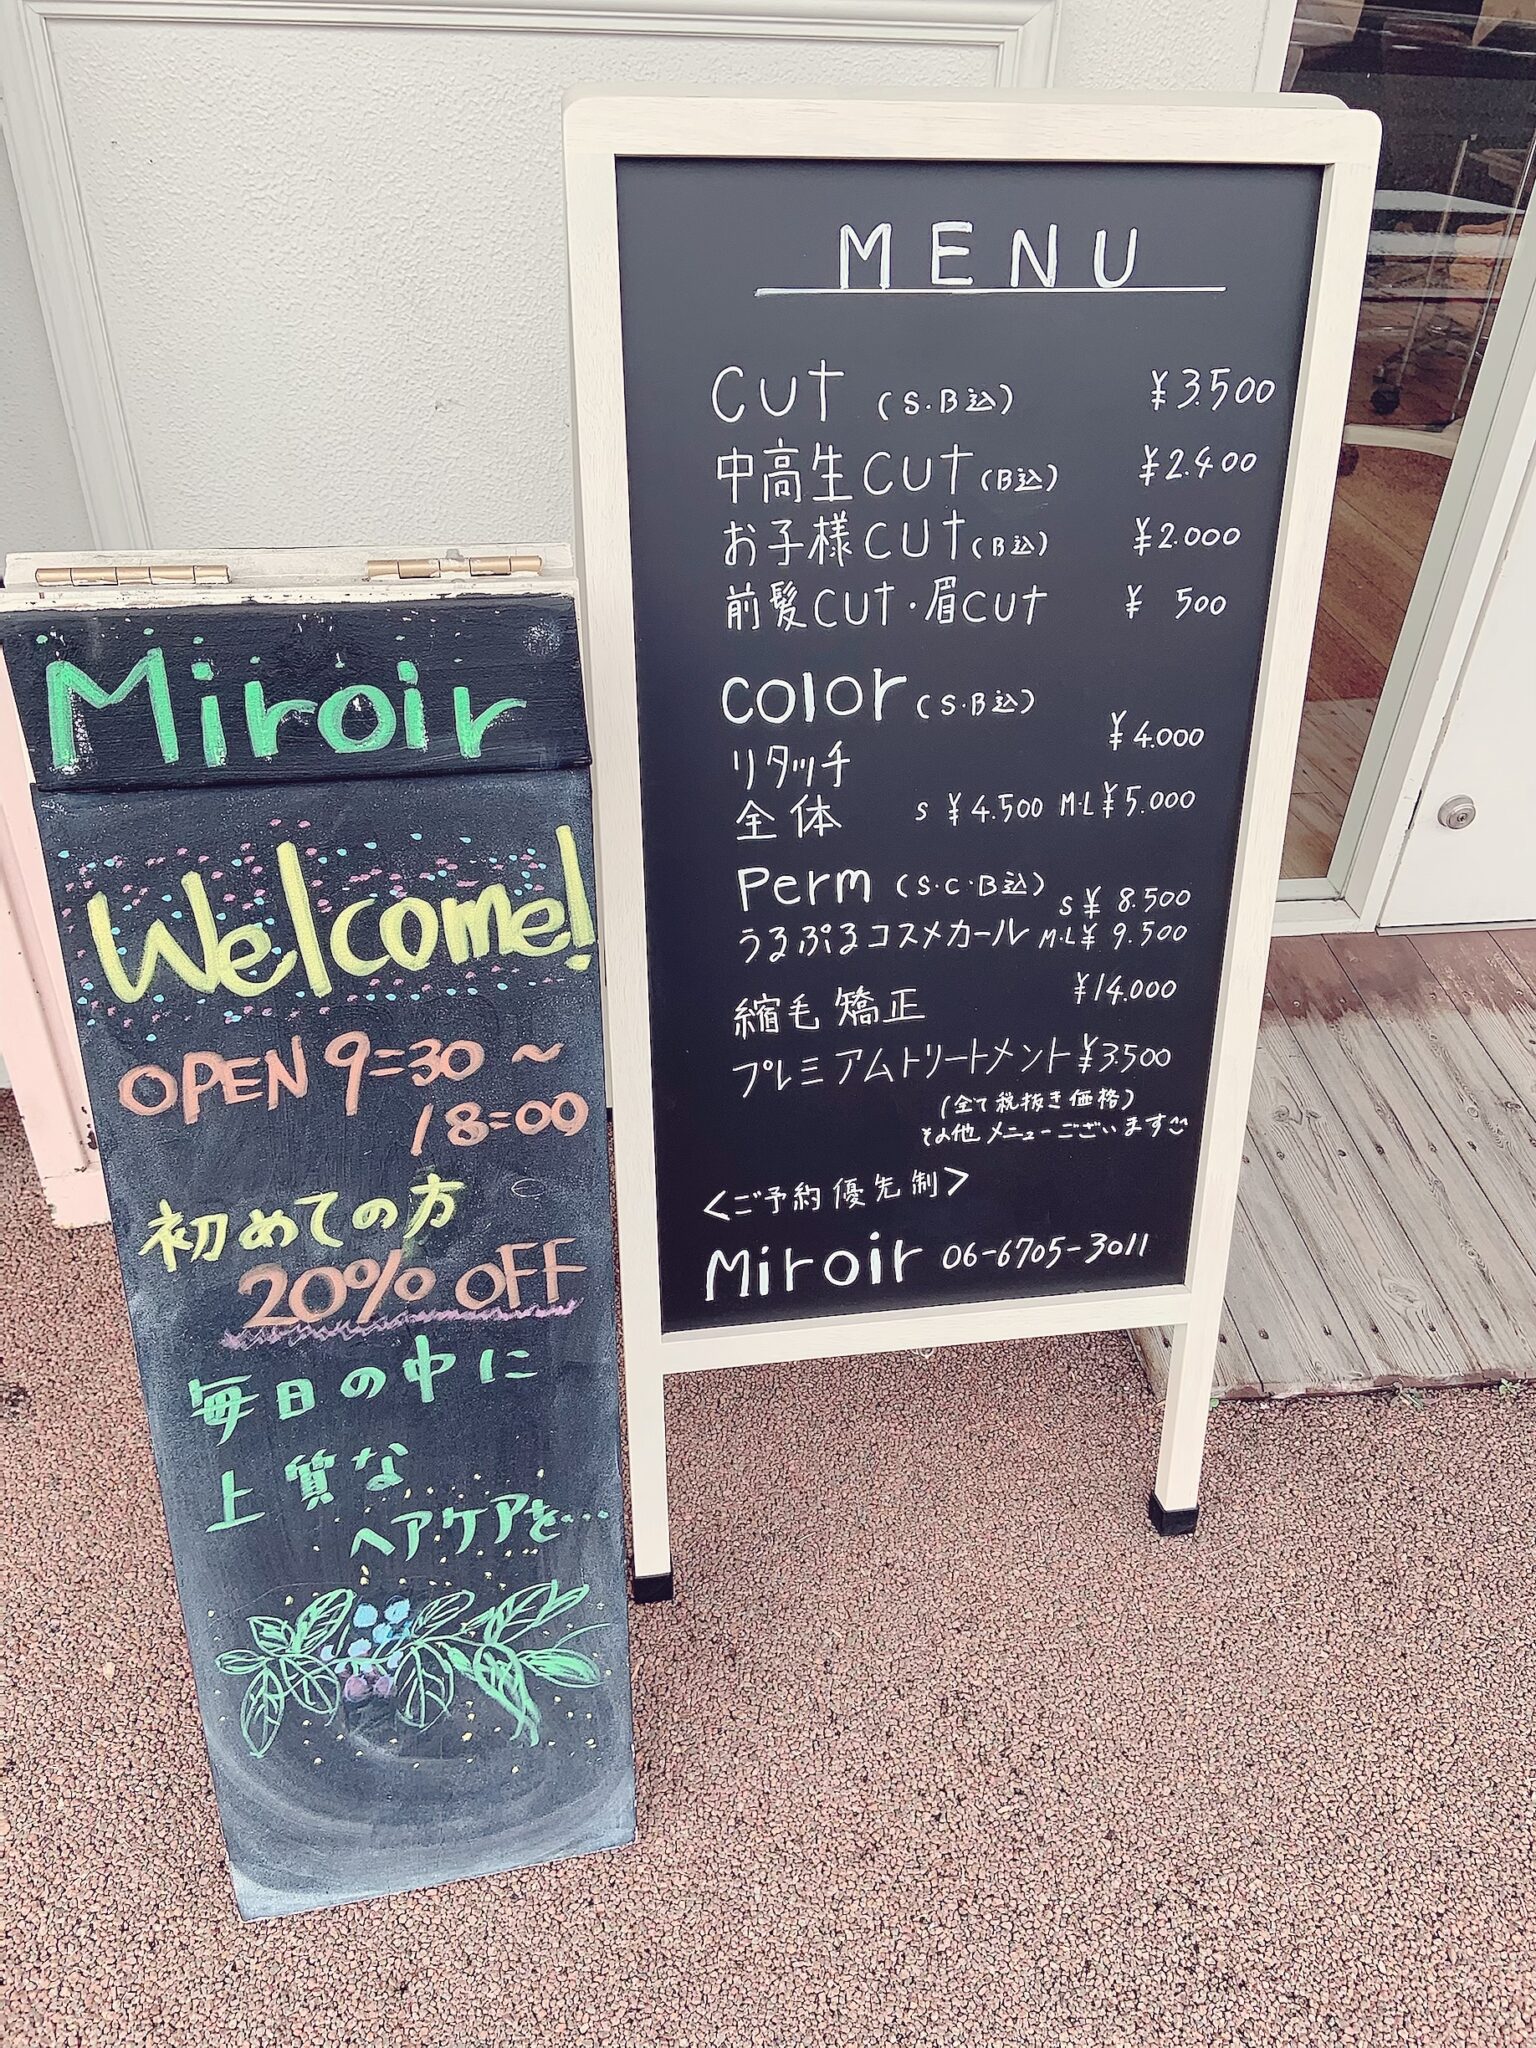 Miroir
Welcome!
OPEN 9=30 〜
18=00
初めての方
20% OFF
毎日の中に
上質な
ヘアケアを…
MENU
cut (S.B込) ¥3.500
中高生cut (B込) ¥2.400
お子様cut (B込) ¥2.000
前髪cut・眉cut ¥ 500
color (S.B込)
リタッチ ¥4.000
全体 S ¥4.500 M・L ¥5.000
Perm (S・C・B込) S ¥ 8.500
うるぷるコスメカール M・L ¥ 9.500
縮毛矯正 ¥14.000
プレミアムトリートメント ¥3.500
(全て税抜き価格)
その他メニューございます
<ご予約優先制>
Miroir 06-6705-3011